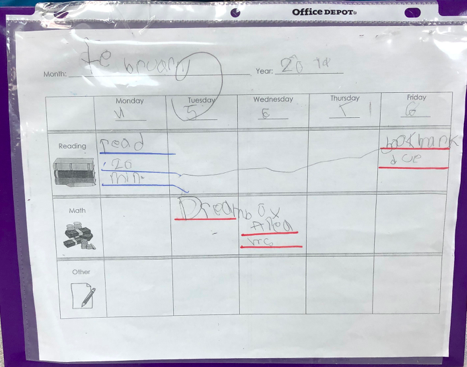 Office DEPOT
Month: febuary Year: 2019
Monday Tuesday Wednesday Thursday Friday
4 5 6
Reading read bookbank
20 due
min
Math Dreambox
Area
Other